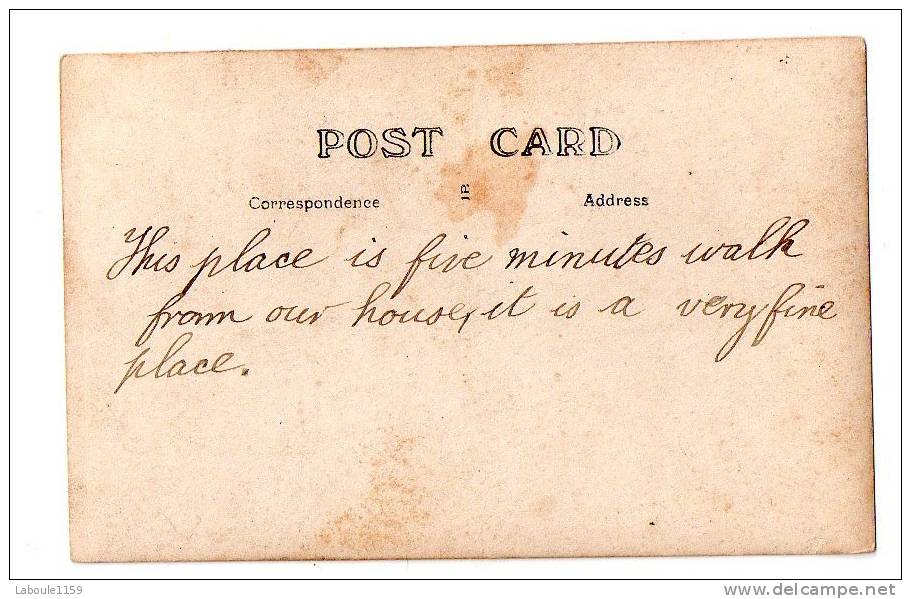 POST CARD
Correspondence JR Address
This place is five minutes walk
from our house, it is a very fine
place.
Laboule1159
www.delcampe.net